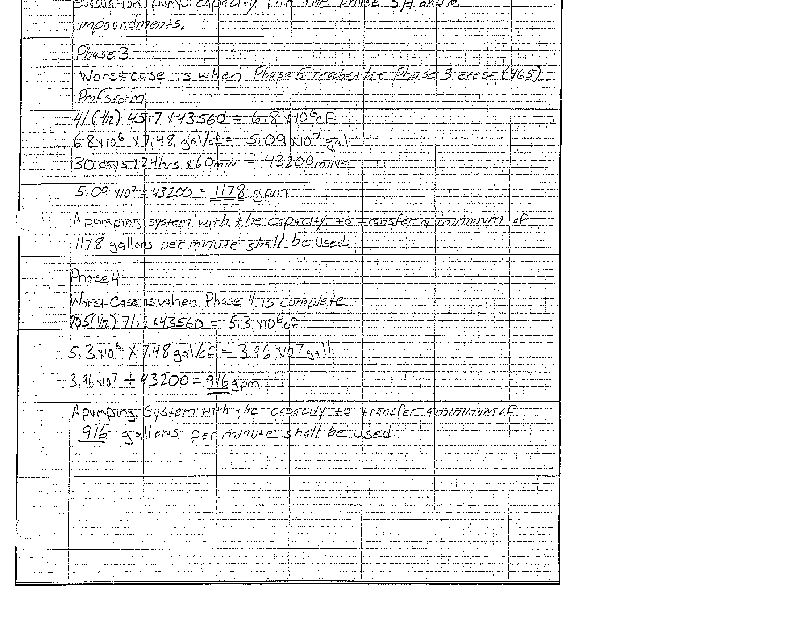 evacuation pump capacity for the Phase 3, 4 and
impoundments.
Phase 3
Worst case is when Phase 6 reaches the Phase 3 crest (465)
Platform
41(1/2) 45.7 x 43560 = 6.8 x10⁶ CF
6.8 x10⁶ x 7.48 gal/CF = 5.09 x10⁷ gal
30 days x 24 hrs x 60 min = 43200 mins
5.09 x10⁷ ÷ 43200 = 1178 gpm
A pumping system with the capacity to transfer a minimum of
1178 gallons per minute shall be used.
Phase 4
Worst Case is when Phase 4 is complete
(1/2) 71. x 43560 = 5.3 x10⁶ CF
5.3 x10⁶ x 7.48 gal/CF = 3.96 x10⁷ gal
3.96 x10⁷ ÷ 43200 = 916 gpm
A pumping System with the capacity to transfer a minimum of
916 gallons per minute shall be used.